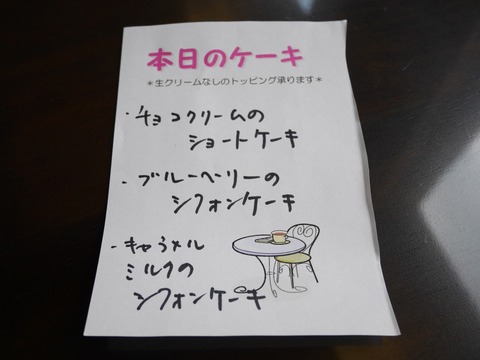 本日のケーキ
＊生クリームなしのトッピング承ります＊
・チョコクリームの
ショートケーキ
・ブルーベリーの
シフォンケーキ
・キャラメル
ミルクの
シフォンケーキ